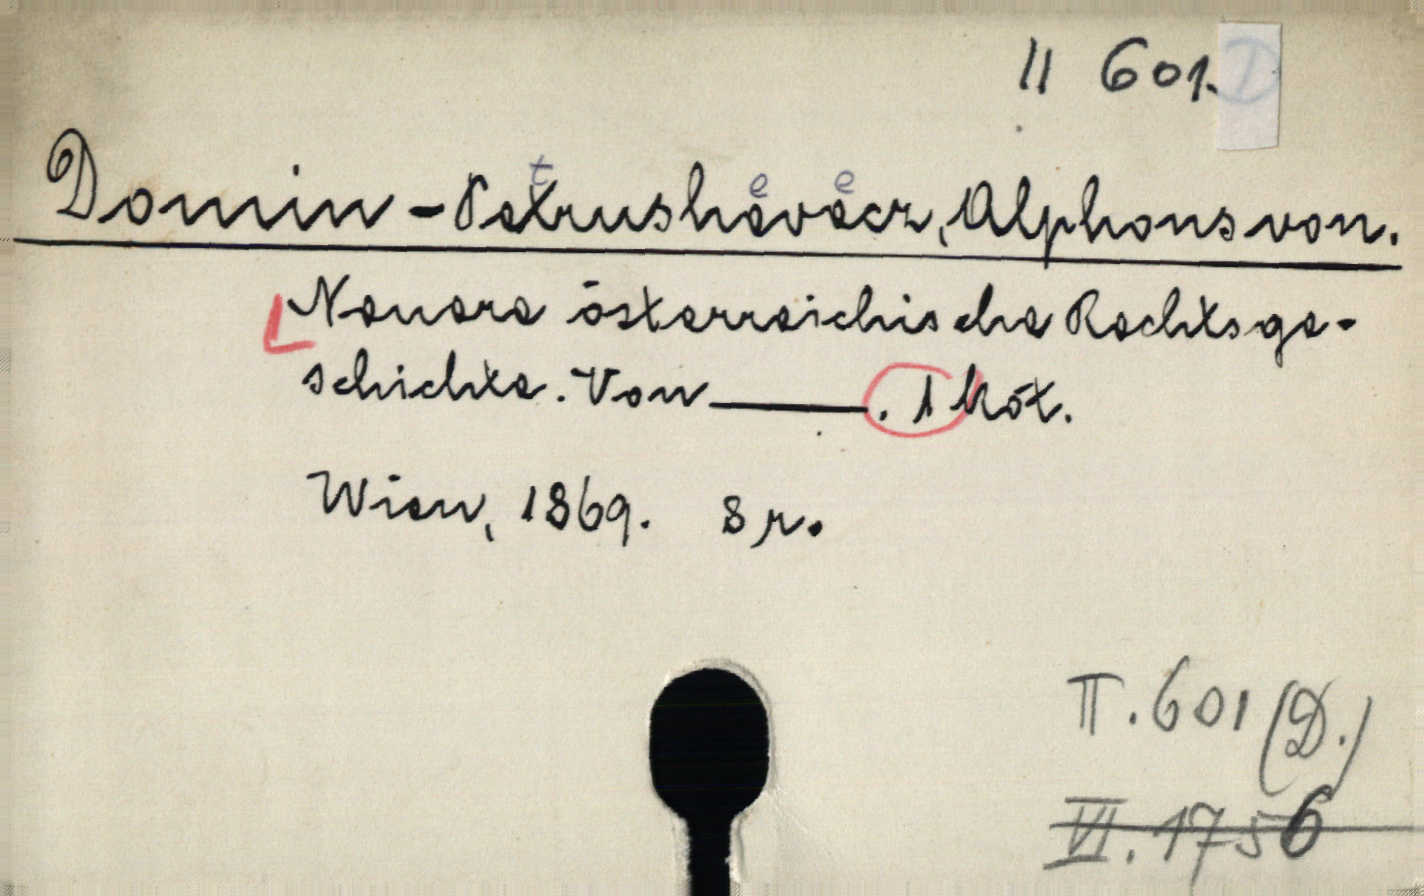 II 601. D
Domin-Petrushevecz, Alphons von.
Neuere österreichische Rechtsge-
schichte. Von ——. 1 köt.
Wien, 1869. 8 r.
II. 601 (D.)
VI. 1756